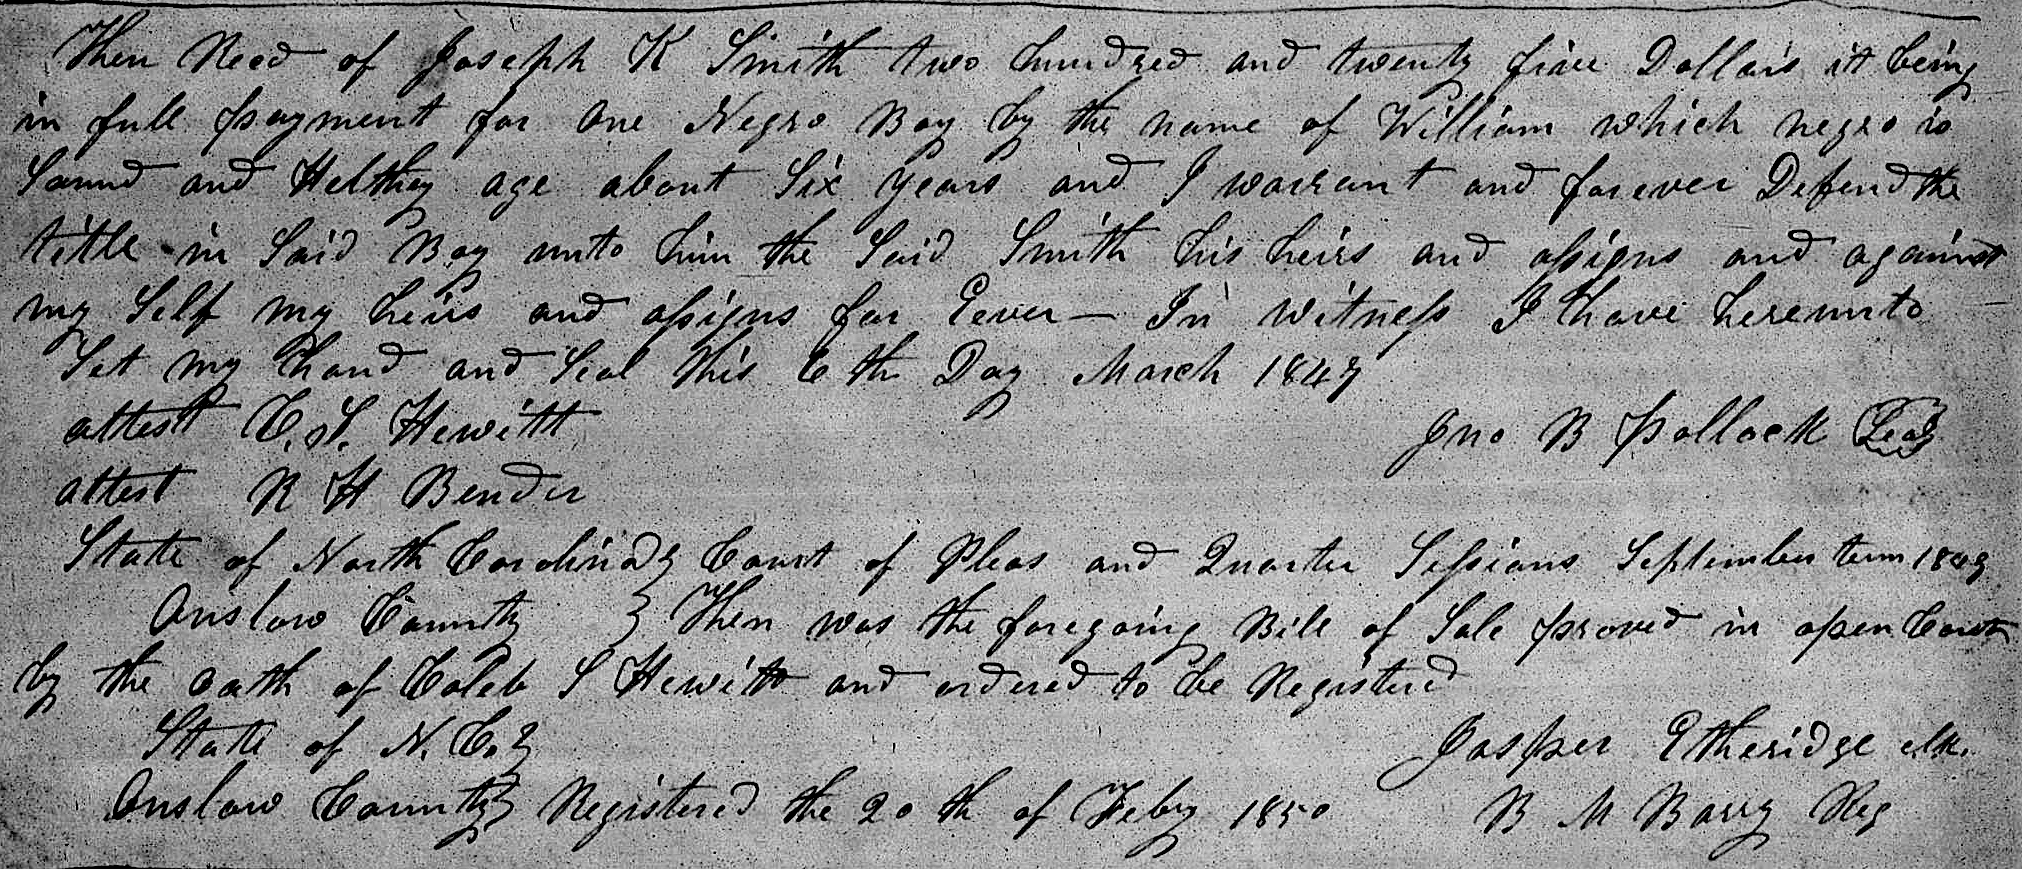 Then Recd of Joseph K Smith two hundred and twenty five Dollars it being
in full payment for one Negro Boy by the name of William which negro is
Sound and Helthey age about Six years and I warrant and forever Defend the
title in Said Boy unto him the Said Smith his heirs and assigns and against
my Self my heirs and assigns for Eever — In Witness I have hereunto
Set my hand and Seal this 6th Day March 1849
attest C. S. Hewitt Jno B Pollock Seal
attest R H Bender
State of North Carolina } Court of Pleas and Quarter Sessions September term 1849
Onslow County } Then was the foregoing Bill of Sale proved in open Court
by the oath of Caleb S Hewitt and ordered to be Registered
State of N. C. } Jasper Etheridge clk.
Onslow County } Registered the 20th of Feby 1850 B M Barry Reg